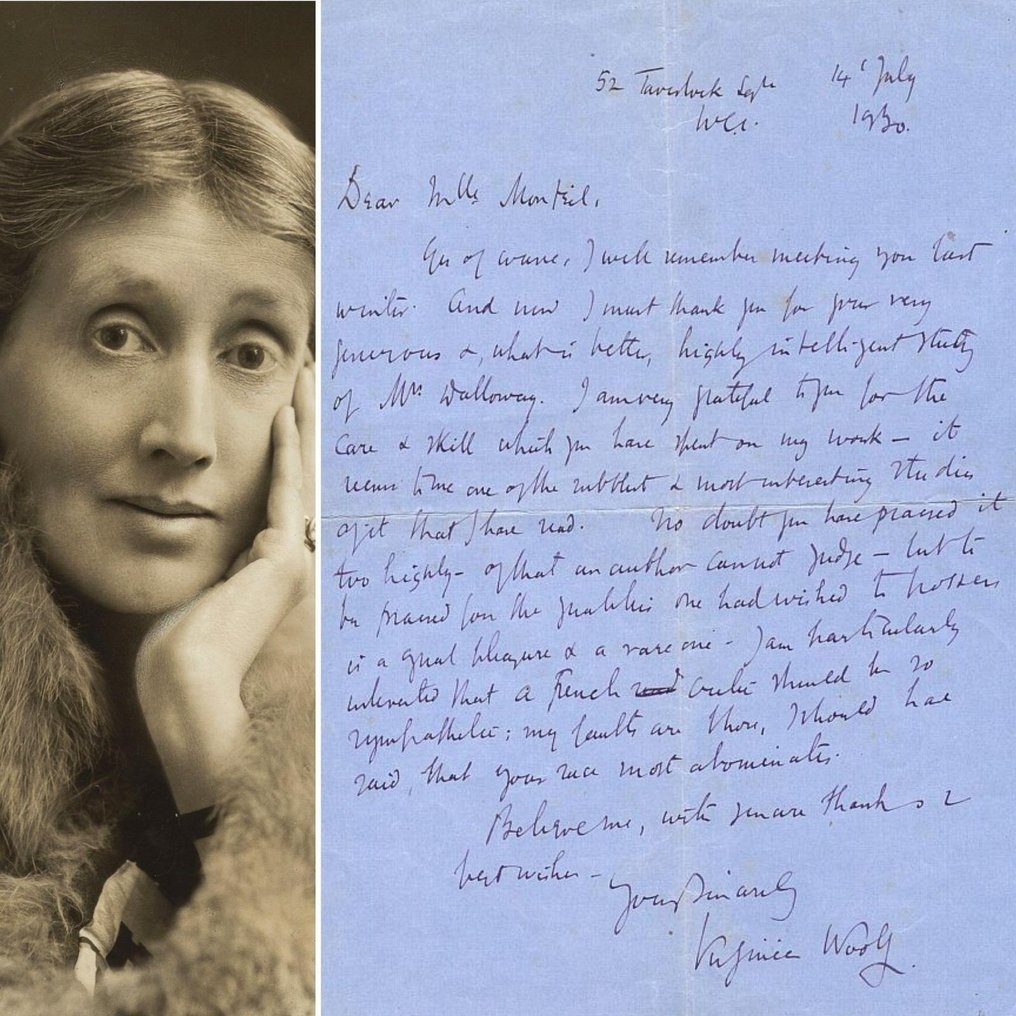 52 Tavistock Sqre 14th July
W.C.1. 1930.
Dear Mlle Monteil,
Yes of course, I well remember meeting you last
winter. And now I must thank you for your very
generous &, what is better, highly intelligent study
of Mrs Dalloway. I am very grateful to you for the
care & skill which you have spent on my work – it
seems to me one of the subtlest & most interesting studies
of it that I have read. No doubt you have praised it
too highly – of that an author cannot judge – but to
be praised for the qualities one had wished to possess
is a great pleasure & a rare one – I am particularly
interested that a French critic should be so
sympathetic; my faults are those, I should have
said, that your race most abominates.
Believe me, with sincere thanks &
best wishes –
Yours sincerely
Virginia Woolf.